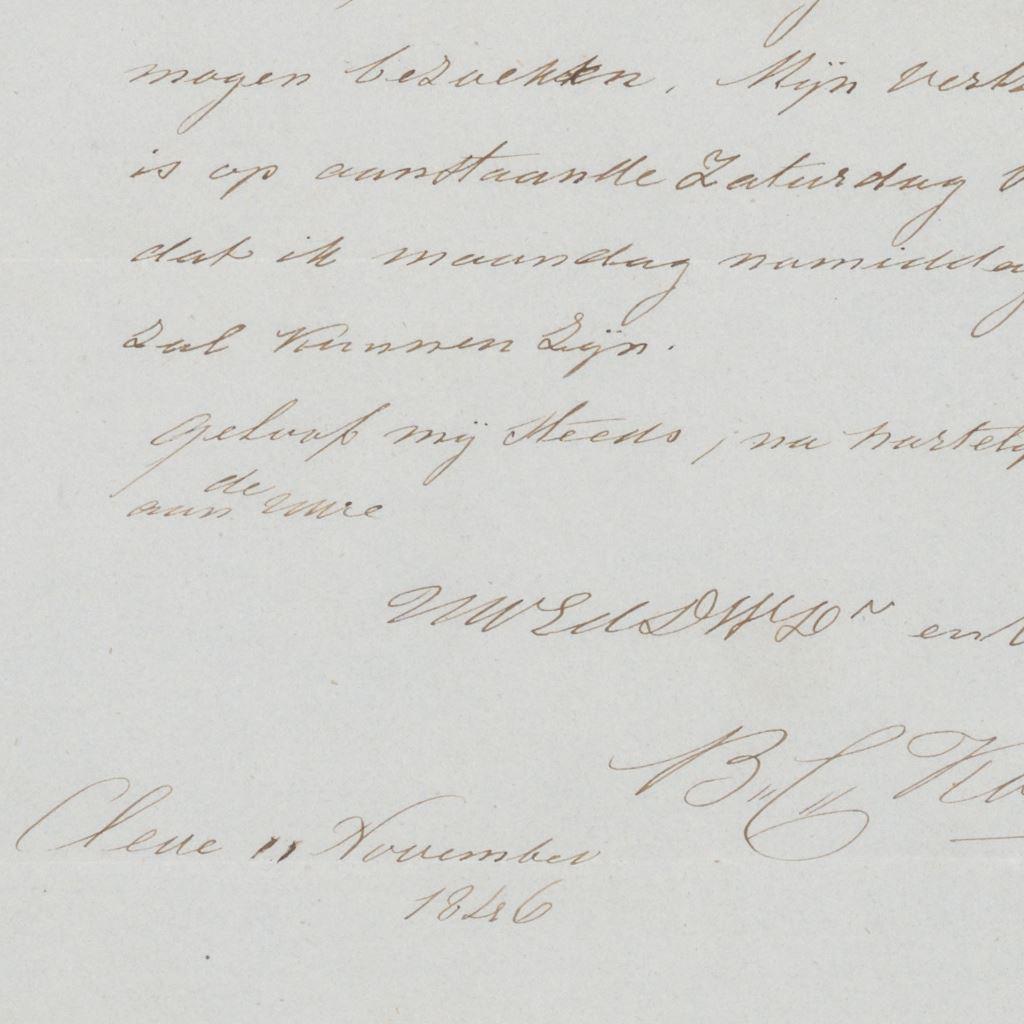 mogen bezoeken. Mijn
is op aanstaande Zaturdag
dat ik maandag namiddag
zal kunnen zijn.
geloof mij steeds, na
aan de Uwe
UWEdDWDr en
B. C.
Cleve 11 November
1846